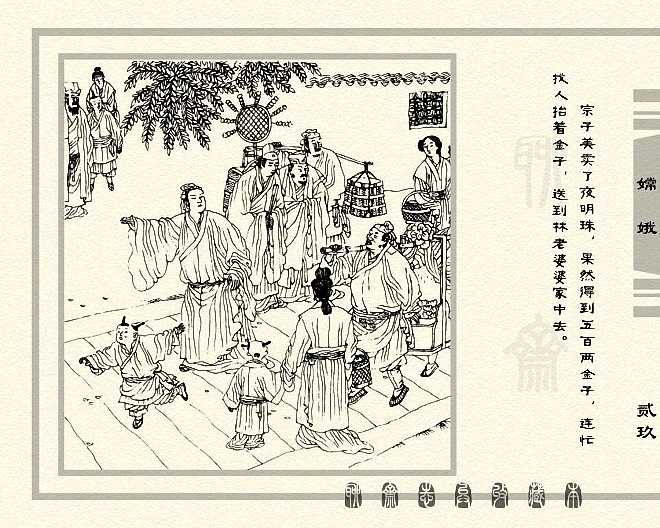 宗子美卖了夜明珠，果然得到五百两金子，连忙
找人抬着金子，送到林老婆婆家中去。
嫦娥
贰玖
聊斋志异收藏本